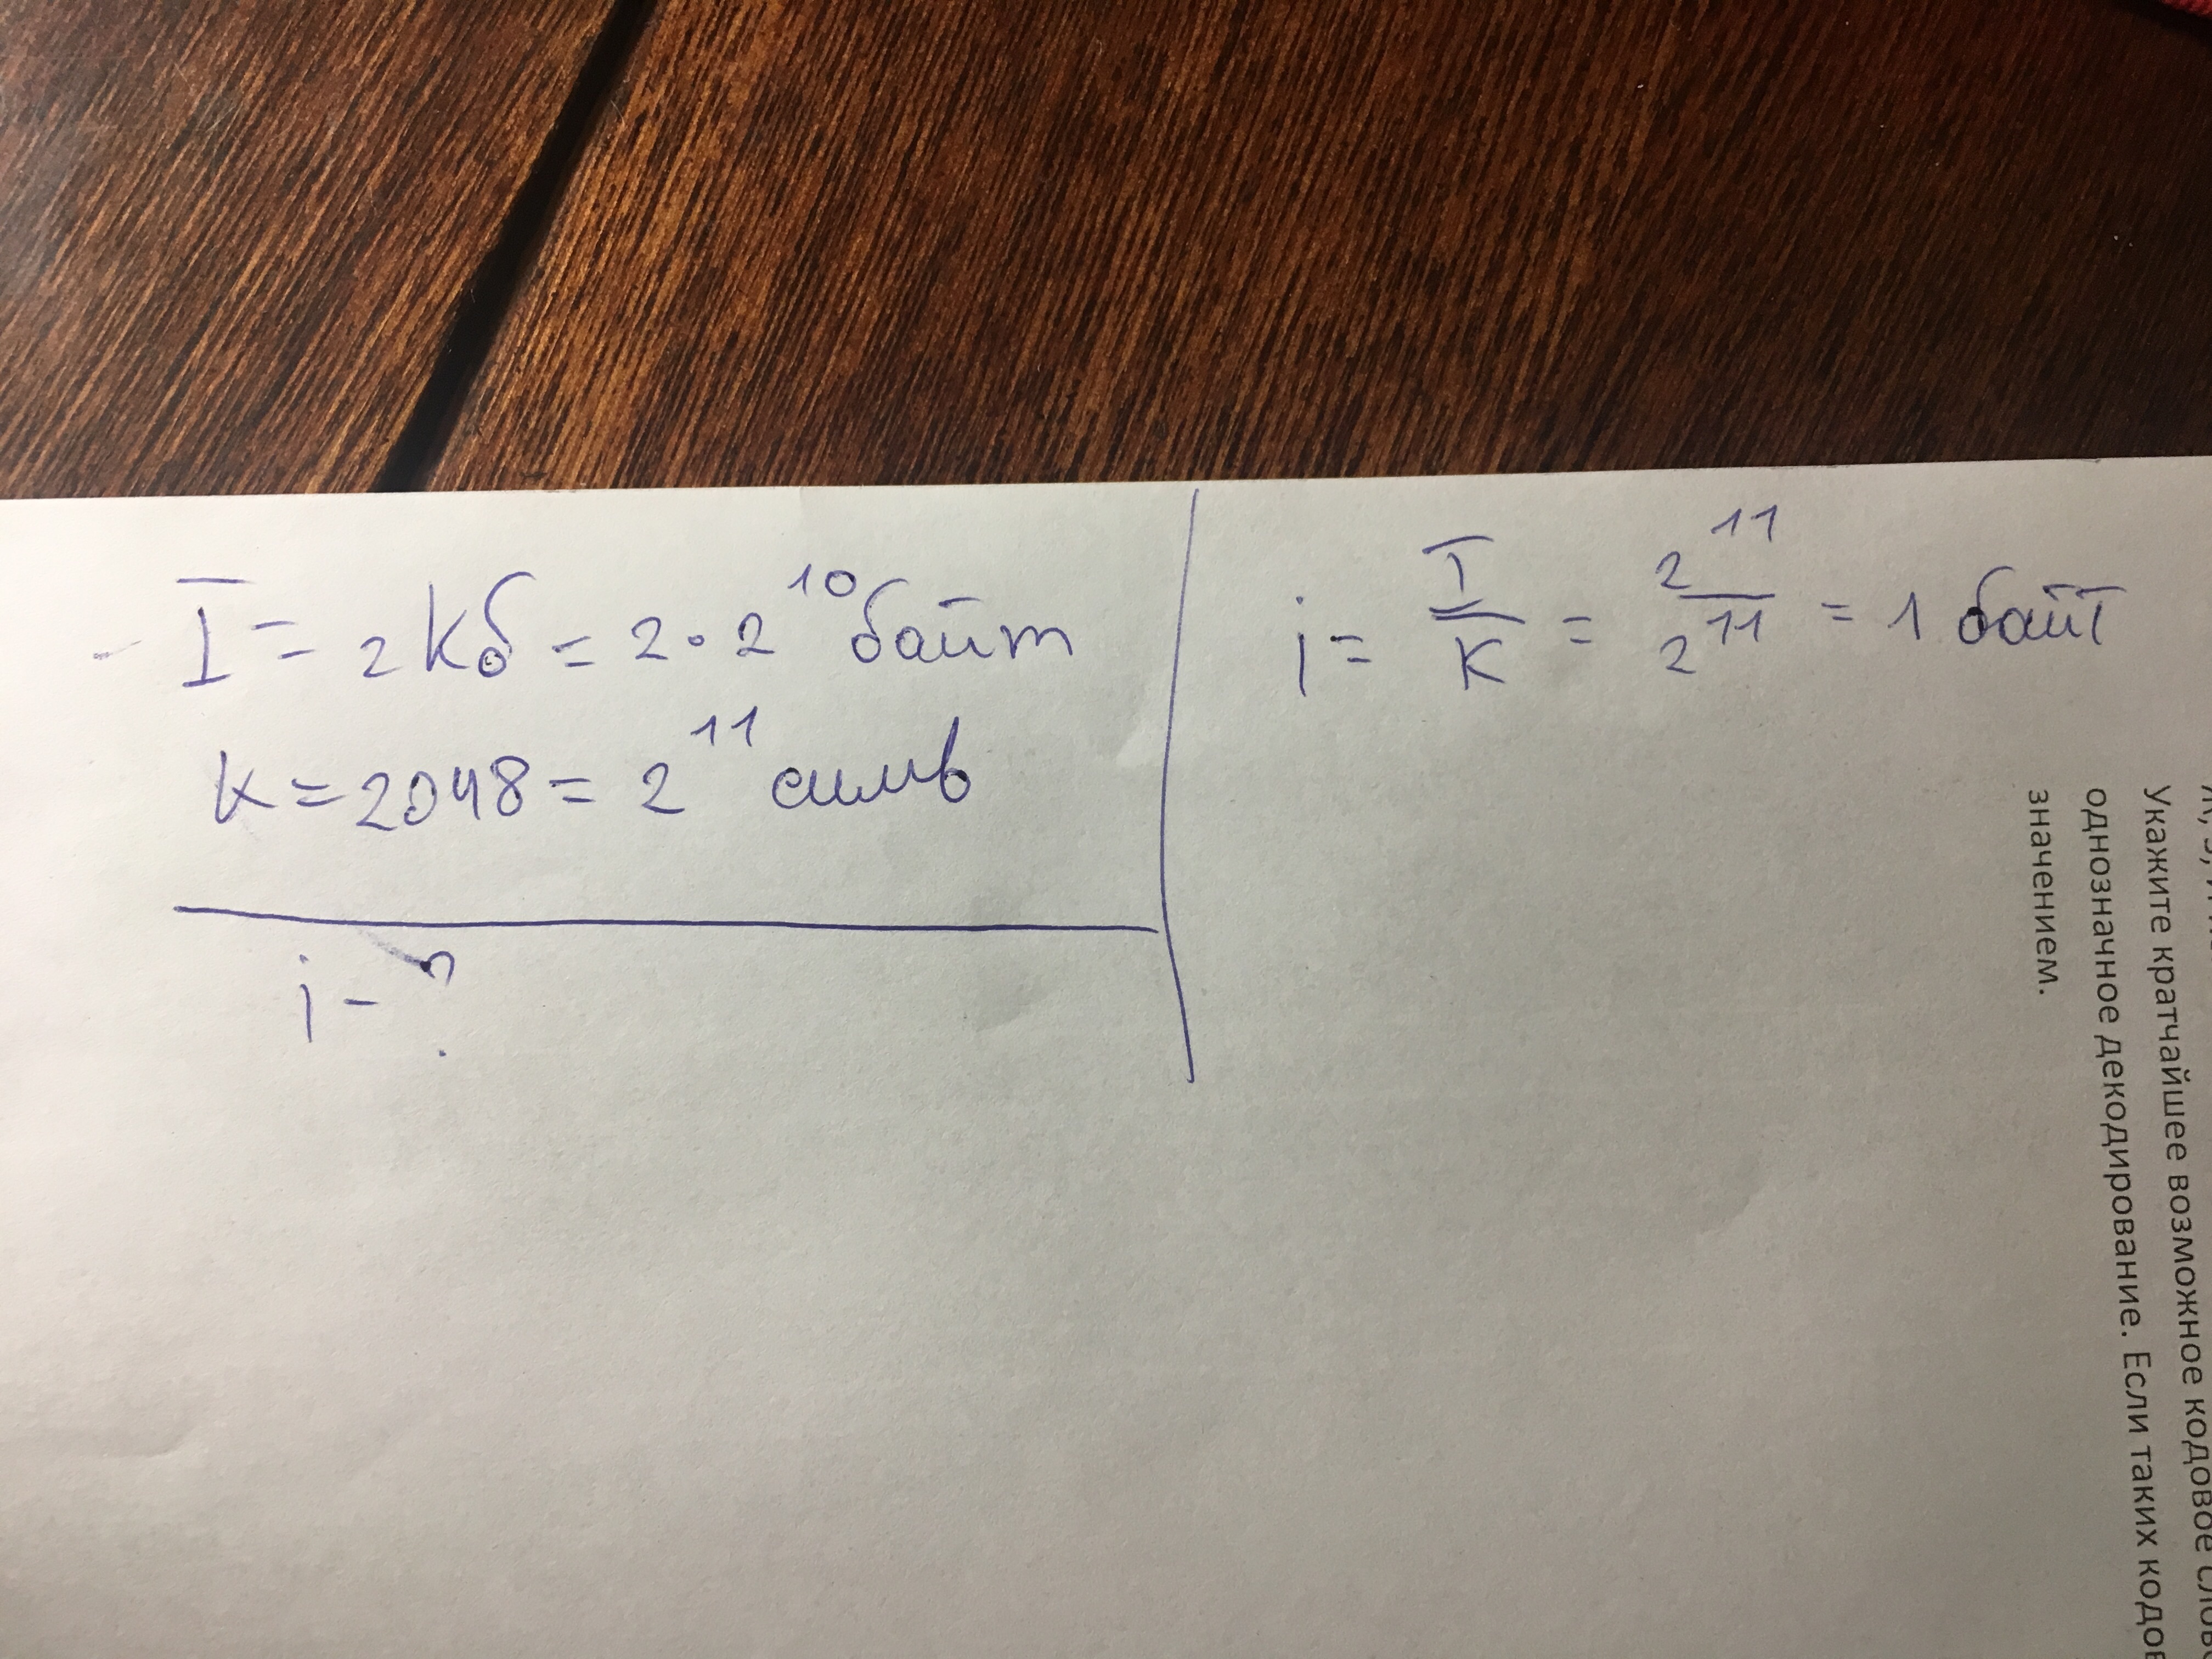 I = 2 Кб = 2 · 2^10 байт
K = 2048 = 2^11 симв
i - ?
i = I/K = 2^11/2^11 = 1 байт
Укажите кратчайшее возможное кодовое
однозначное декодирование. Если таких
значением.